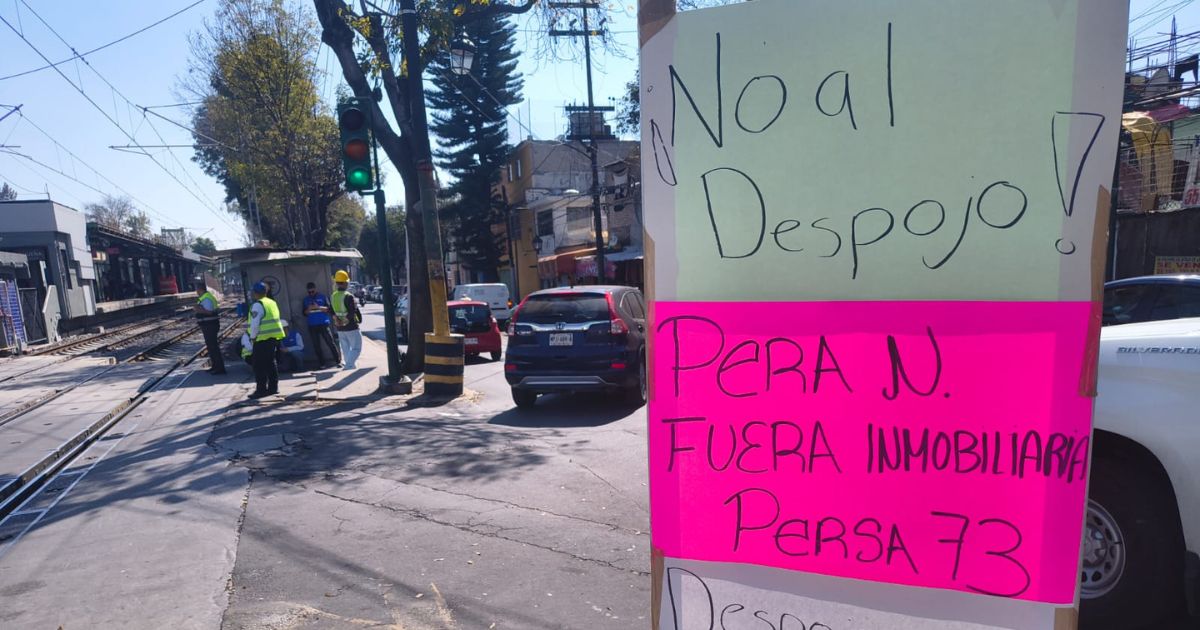 ¡No al
Despojo!
PERA N.
FUERA INMOBILIARIA
PERSA 73
Despo
SILVERADO
SE VEN